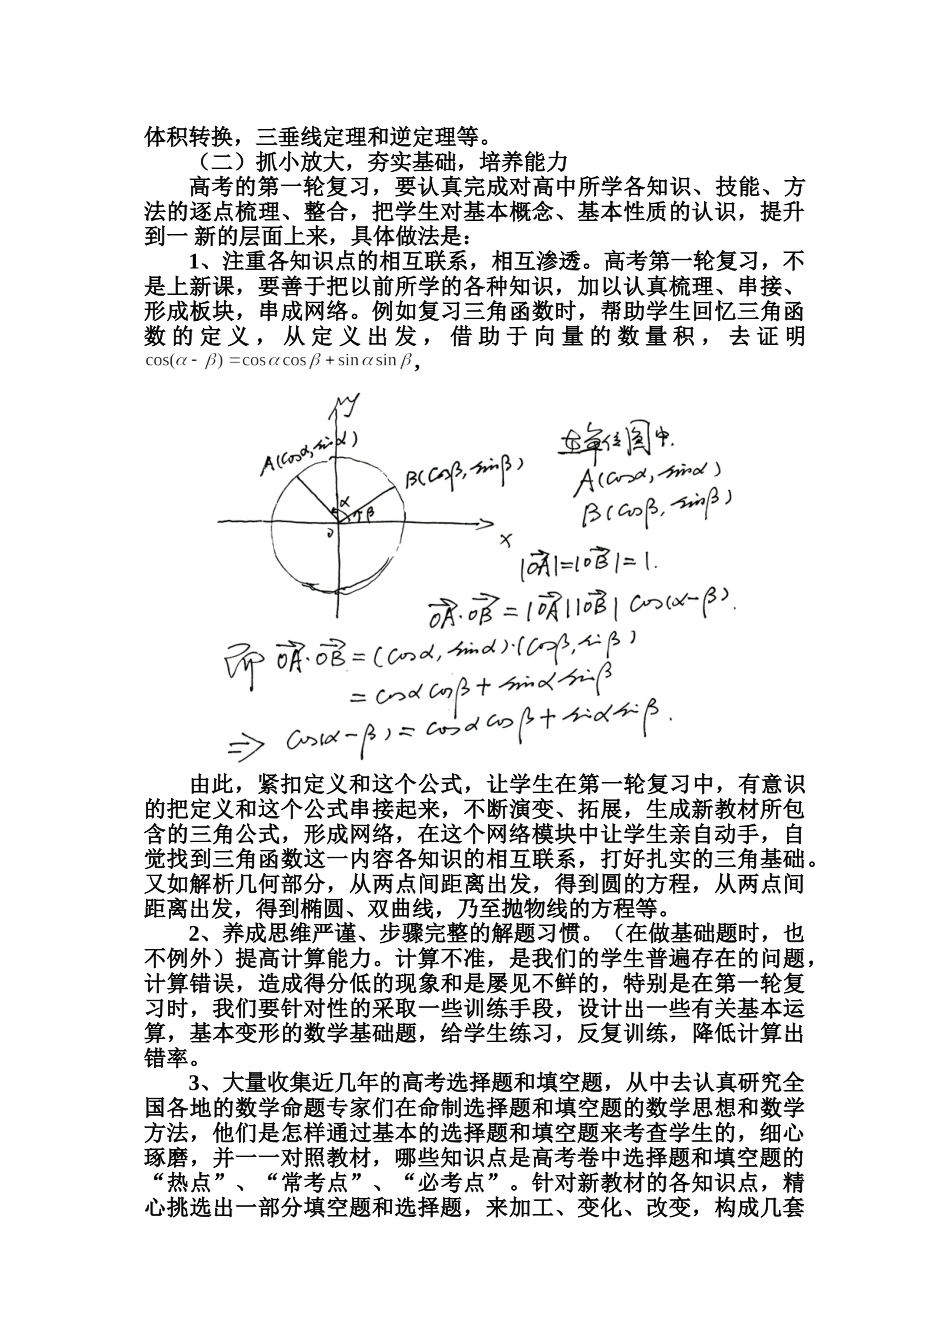 体积转换，三垂线定理和逆定理等。
（二）抓小放大，夯实基础，培养能力
高考的第一轮复习，要认真完成对高中所学各知识、技能、方
法的逐点梳理、整合，把学生对基本概念、基本性质的认识，提升
到一 新的层面上来，具体做法是：
1、注重各知识点的相互联系，相互渗透。高考第一轮复习，不
是上新课，要善于把以前所学的各种知识，加以认真梳理、串接、
形成板块，串成网络。例如复习三角函数时，帮助学生回忆三角函
数的定义，从定义出发，借助于向量的数量积，去证明
cos(α - β) =cosαcosβ + sinαsinβ，
y
A(cosα,sinα)
B(cosβ,sinβ)
α
β
o
x
在单位圆中.
A(cosα, sinα)
B(cosβ, sinβ)
|OA|=|OB|=1.
OA·OB=|OA||OB|cos(α-β).
即 OA·OB=(cosα, sinα)·(cosβ, sinβ)
=cosαcosβ+sinαsinβ
⇒ cos(α-β)=cosαcosβ+sinαsinβ.
由此，紧扣定义和这个公式，让学生在第一轮复习中，有意识
的把定义和这个公式串接起来，不断演变、拓展，生成新教材所包
含的三角公式，形成网络，在这个网络模块中让学生亲自动手，自
觉找到三角函数这一内容各知识的相互联系，打好扎实的三角基础。
又如解析几何部分，从两点间距离出发，得到圆的方程，从两点间
距离出发，得到椭圆、双曲线，乃至抛物线的方程等。
2、养成思维严谨、步骤完整的解题习惯。（在做基础题时，也
不例外）提高计算能力。计算不准，是我们的学生普遍存在的问题，
计算错误，造成得分低的现象和是屡见不鲜的，特别是在第一轮复
习时，我们要针对性的采取一些训练手段，设计出一些有关基本运
算，基本变形的数学基础题，给学生练习，反复训练，降低计算出
错率。
3、大量收集近几年的高考选择题和填空题，从中去认真研究全
国各地的数学命题专家们在命制选择题和填空题的数学思想和数学
方法，他们是怎样通过基本的选择题和填空题来考查学生的，细心
琢磨，并一一对照教材，哪些知识点是高考卷中选择题和填空题的
“热点”、“常考点”、“必考点”。针对新教材的各知识点，精
心挑选出一部分填空题和选择题，来加工、变化、改变，构成几套